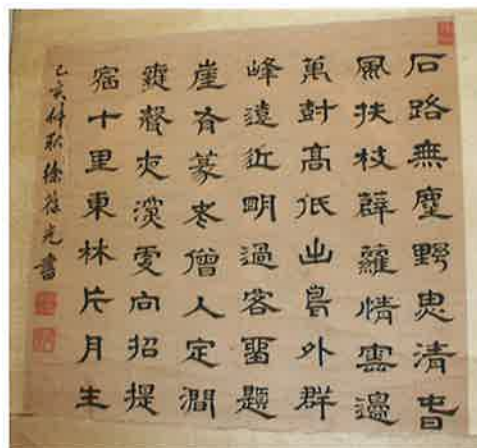 石路無塵野思清旾
風扶杖薜蘿情雲邊
萬尌高低出鳥外群
峰遠近眀過客留題
崖有篆老僧入定澗
無聲夜深更向招提
宿十里東林片月生
己亥仲秋徐葆光書